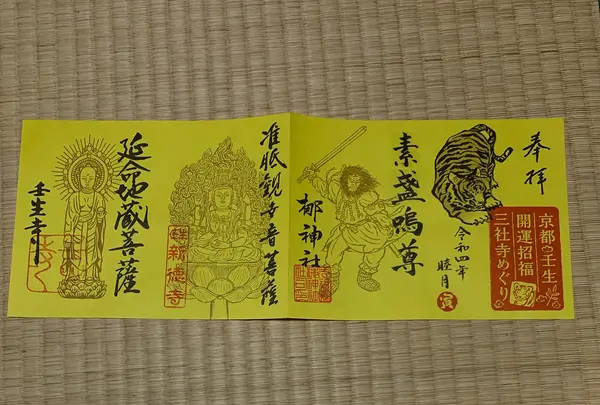 奉拝
京都の壬生
開運招福
三社寺めぐり
令和四年
睦月
寅
素盞嗚尊
梛神社
准胝観世音菩薩
新徳寺
延命地蔵菩薩
壬生寺